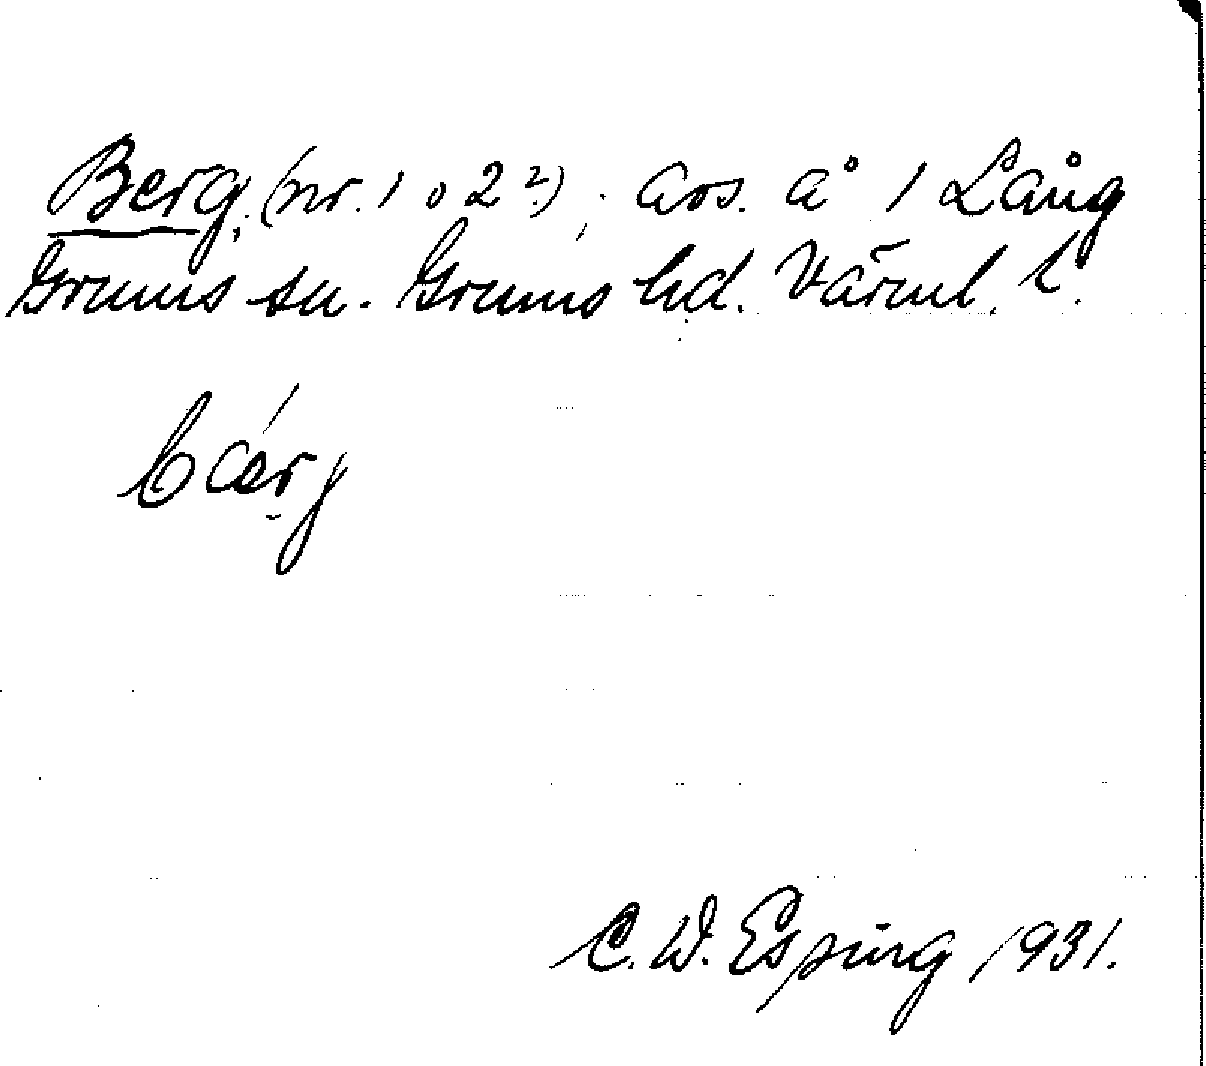 Berg, (nr. 1 o 2 2), avs. å 1 Lång
Grums sn. Grums hd. Värml. l.
bærj
C. W. Esping 1931.